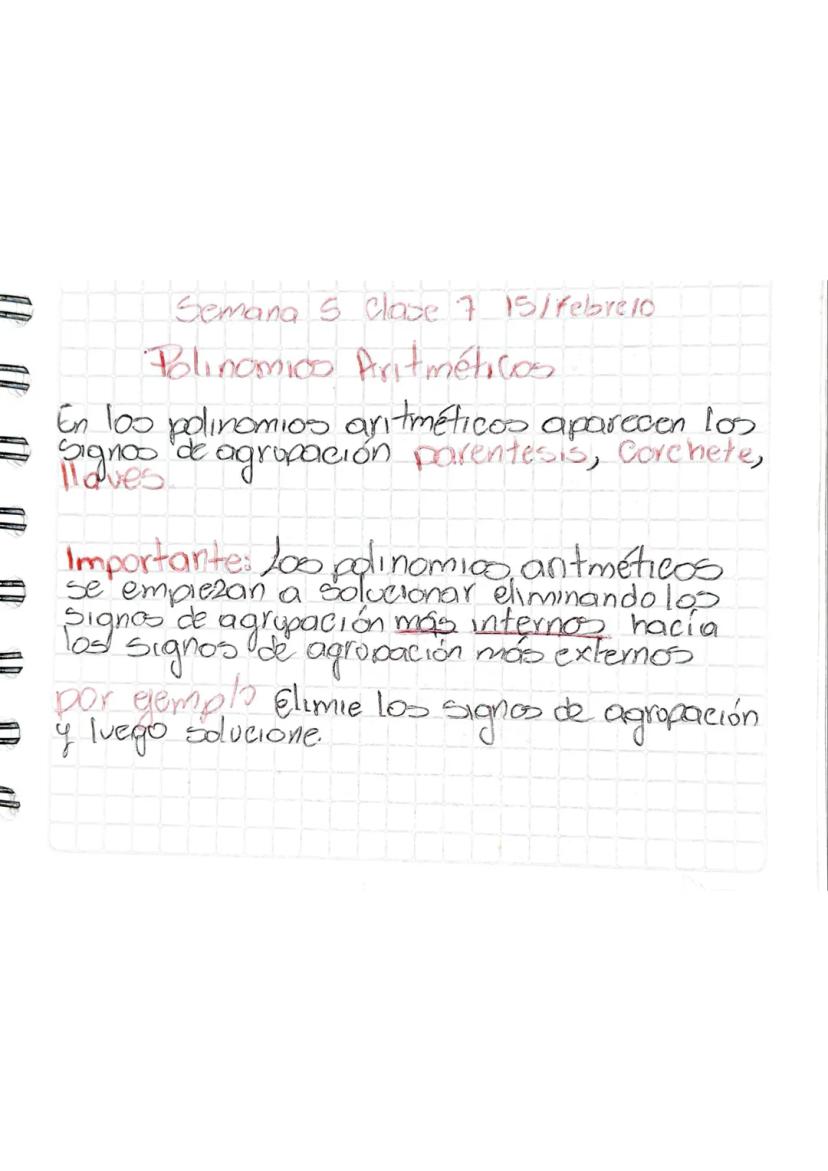 Semana 5 Clase 7 15/febrero
Polinomios Aritméticos
En los polinomios aritméticos aparecen los
signos de agrupación parentesis, Corchete,
llaves.
Importante: Los polinomios aritméticos
se empiezan a solucionar eliminando los
signos de agrupación más internos hacía
los signos de agropación más externos
por ejemplo Elimie los signos de agropación
y luego solucione.